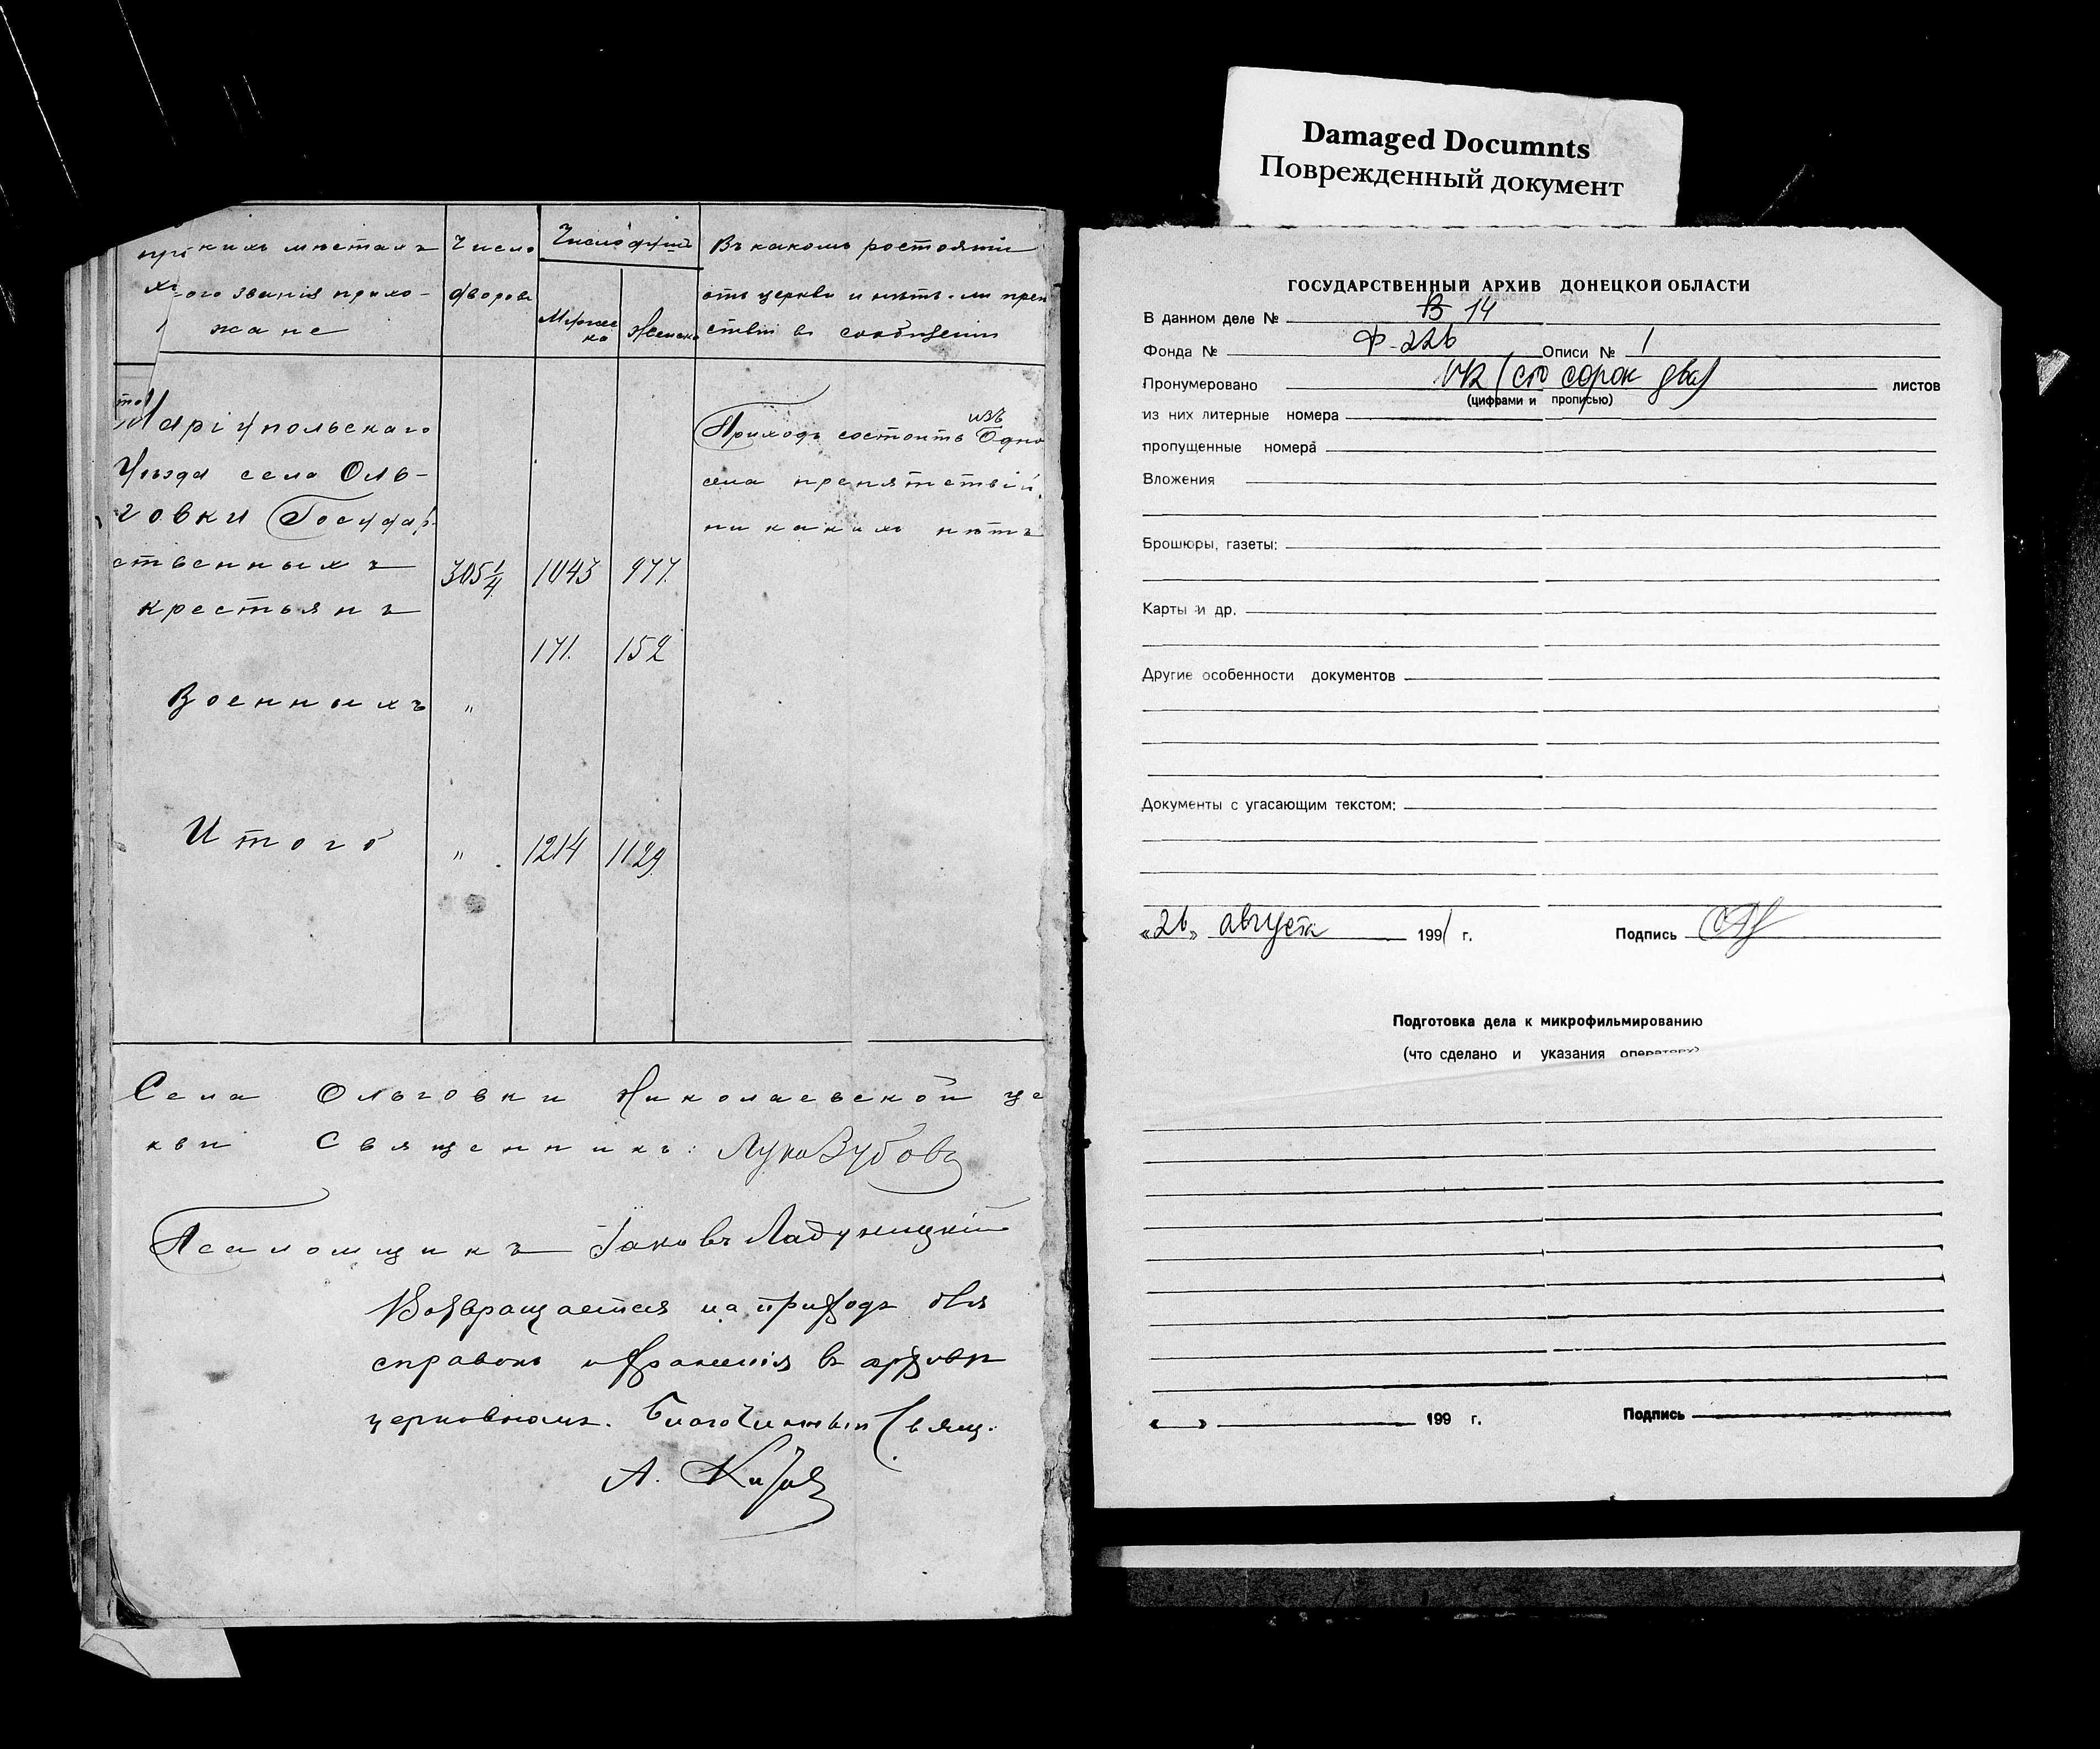 Damaged Documnts
Поврежденный документ
кихъ мѣстахъ
ого званія прихо-
жане
Число
дворовъ
Число душъ
Мужес
ка
Женска
Въ какомъ ростояніи
отъ церкви и нѣтъ-ли преп
ствій въ сообщеніи
Маріупольскаго
Уѣзда села Оль-
говки Государ-
ственныхъ
крестьянъ
305 1/4 1043 977.
171. 152
Военныхъ "
Итого " 1214 1129
изъ
Приходъ состоитъ Одно
села препятствій
никакихъ нѣтъ
Села Ольговки Николаевской це
кви Священникъ: Лука Зубовъ
Псаломщикъ Іаковъ Ладуницкій
Возвращается на приходъ для
справокъ и храненія въ архивѣ
церковномъ. Благочинный Свящ.
А.
ГОСУДАРСТВЕННЫЙ АРХИВ ДОНЕЦКОЙ ОБЛАСТИ
В данном деле № 14
Фонда № Ф-226 Описи № 1
Пронумеровано 142 (сто сорок два) листов
(цифрами и прописью)
из них литерные номера
пропущенные номера
Вложения
Брошюры, газеты:
Карты и др.
Другие особенности документов
Документы с угасающим текстом:
«26» августа 1991 г. Подпись
Подготовка дела к микрофильмированию
(что сделано и указания оператору)
« » 199 г. Подпись